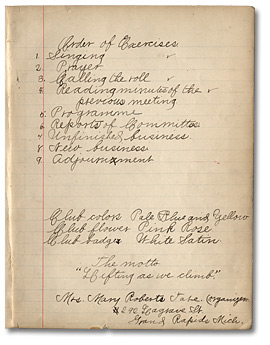 Order of Exercises
1. Singing
2. Prayer
3. Calling the roll
4. Reading minutes of the
previous meeting
5. Programme
6. Reports of Committee
7. Unfinished business.
8. New business
9. Adjournment
Club colors Pale Blue and Yellow
Club flower Pink Rose
Club badge White Satin
The motto
"Lifting as we climb."
Mrs. Mary Roberts Tate, Organizer
St.
Grand Rapids Mich.